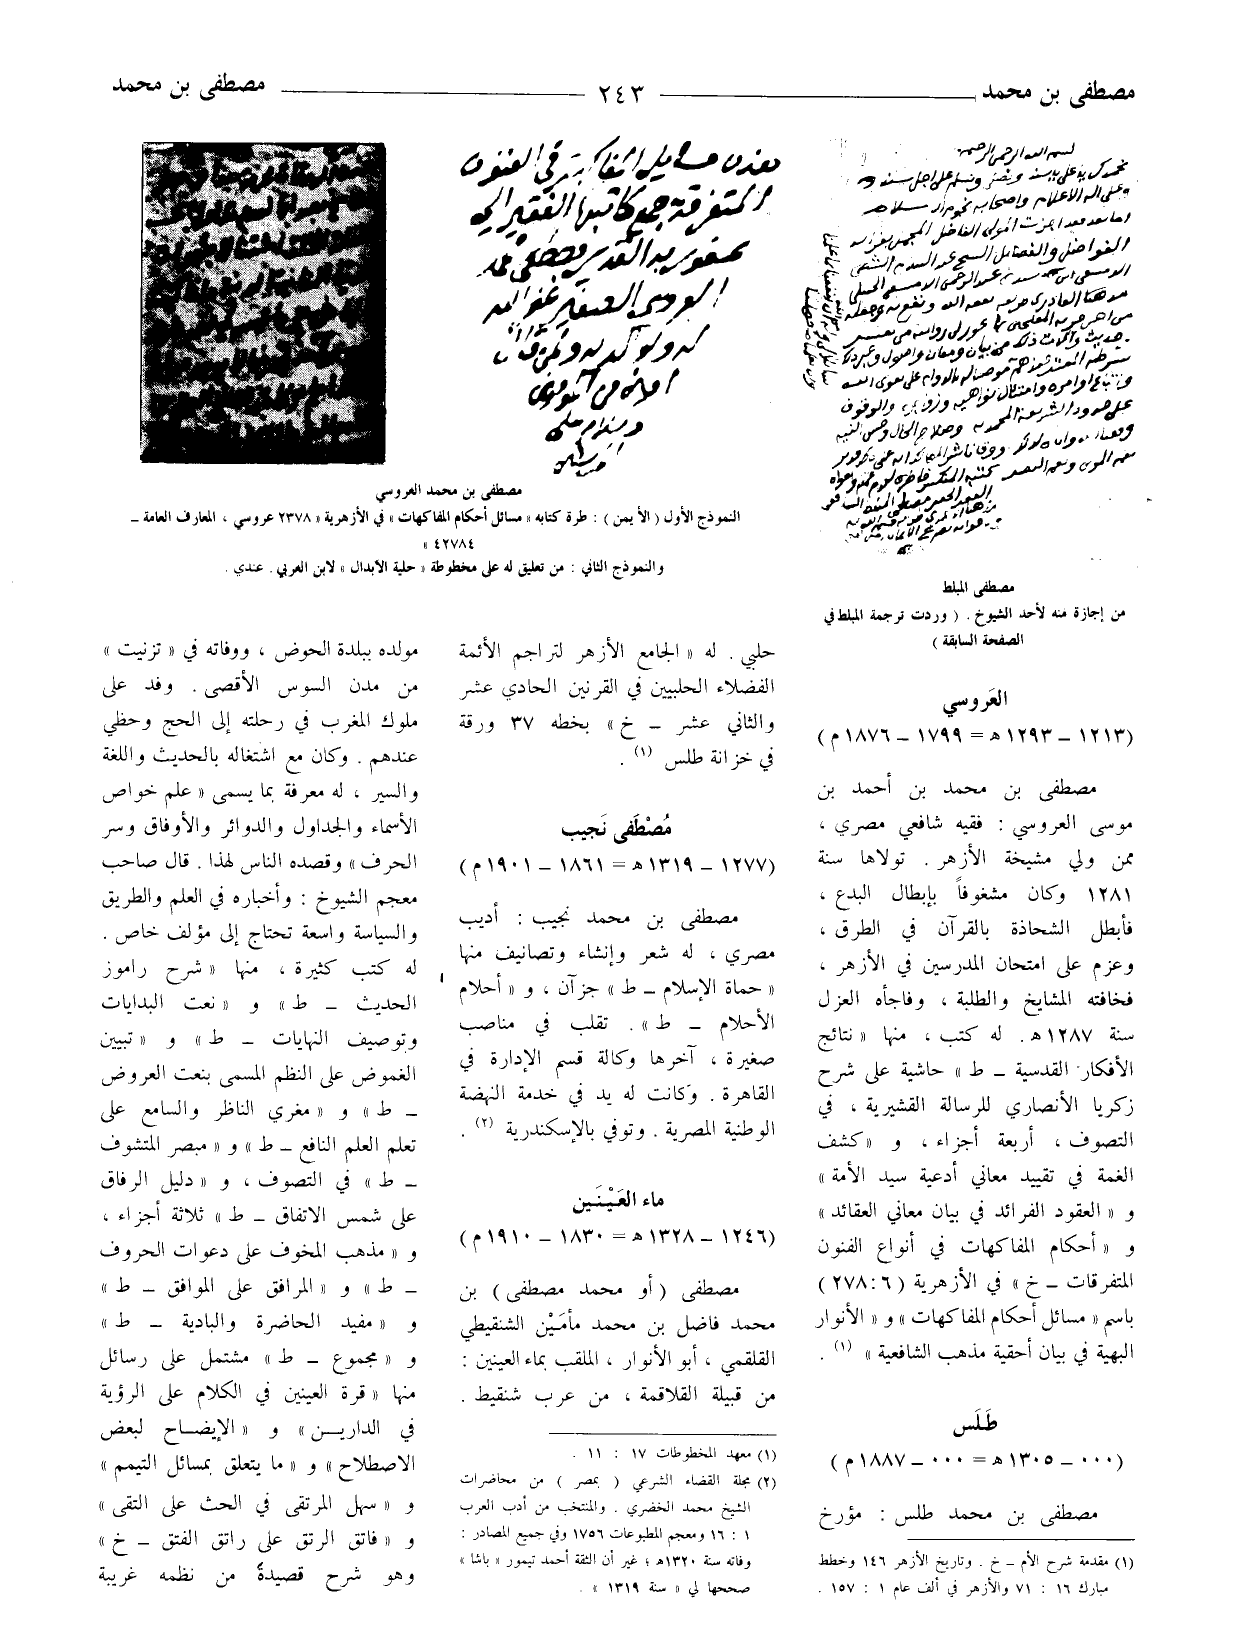 مصطفى بن محمد
٢٤٣
مصطفى بن محمد
بسم الله الرحمن الرحيم
مصطفى المبلط
من إجازة منه لأحد الشيوخ . ( وردت ترجمة المبلط في
الصفحة السابقة )
مصطفى بن محمد العروسي
النموذج الأول ( الأيمن ) : طرة كتابه « مسائل أحكام المفاكهات » في الأزهرية « ٢٣٧٨ عروسي ، المعارف العامة ــ
٤٢٧٨٤ »
والنموذج الثاني : من تعليق له على مخطوطة « حلية الأبدال » لابن العربي . عندي .
العَروسي
(١٢١٣ ــ ١٢٩٣ ه = ١٧٩٩ ــ ١٨٧٦ م)
مصطفى بن محمد بن أحمد بن
موسى العروسي : فقيه شافعي مصري ،
ممن ولي مشيخة الأزهر . تولاها سنة
١٢٨١ وكان مشغوفاً بإبطال البدع ،
فأبطل الشحاذة بالقرآن في الطرق ،
وعزم على امتحان المدرسين في الأزهر ،
فخافته المشايخ والطلبة ، وفاجأه العزل
سنة ١٢٨٧ ه . له كتب ، منها « نتائج
الأفكار القدسية ــ ط » حاشية على شرح
زكريا الأنصاري للرسالة القشيرية ، في
التصوف ، أربعة أجزاء ، و « كشف
الغمة في تقييد معاني أدعية سيد الأمة »
و « العقود الفرائد في بيان معاني العقائد »
و « أحكام المفاكهات في أنواع الفنون
المتفرقات ــ خ » في الأزهرية ( ٦ : ٢٧٨ )
باسم « مسائل أحكام المفاكهات » و « الأنوار
البهية في بيان أحقية مذهب الشافعية » (١) .
طَلَس
(٠٠٠ ــ ١٣٠٥ ه = ٠٠٠ ــ ١٨٨٧ م)
مصطفى بن محمد طلس : مؤرخ
(١) مقدمة شرح الأم ــ خ . وتاريخ الأزهر ١٤٦ وخطط
مبارك ١٦ : ٧١ والأزهر في ألف عام ١ : ١٥٧ .
حلبي . له « الجامع الأزهر لتراجم الأئمة
الفضلاء الحلبيين في القرنين الحادي عشر
والثاني عشر ــ خ » بخطه ٣٧ ورقة
في خزانة طلس (١) .
مُصْطَفى نَجيب
(١٢٧٧ ــ ١٣١٩ ه = ١٨٦١ ــ ١٩٠١ م)
مصطفى بن محمد نجيب : أديب
مصري ، له شعر وإنشاء وتصانيف منها
« حماة الإسلام ــ ط » جزآن ، و « أحلام
الأحلام ــ ط » . تقلب في مناصب
صغيرة ، آخرها وكالة قسم الإدارة في
القاهرة . وكانت له يد في خدمة النهضة
الوطنية المصرية . وتوفي بالإسكندرية (٢) .
ماء العَيْنَين
(١٢٤٦ ــ ١٣٢٨ ه = ١٨٣٠ ــ ١٩١٠ م)
مصطفى ( أو محمد مصطفى ) بن
محمد فاضل بن محمد مأمَيْن الشنقيطي
القلقمي ، أبو الأنوار ، الملقب بماء العينين :
من قبيلة القلاقمة ، من عرب شنقيط .
(١) معهد المخطوطات ١٧ : ١١ .
(٢) مجلة القضاء الشرعي ( بمصر ) من محاضرات
الشيخ محمد الخضري . والمنتخب من أدب العرب
١ : ١٦ ومعجم المطبوعات ١٧٥٦ وفي جميع المصادر :
وفاته سنة ١٣٢٠ ه ؛ غير أن الثقة أحمد تيمور « باشا »
صححها لي « سنة ١٣١٩ » .
مولده ببلدة الحوض ، ووفاته في « تزنيت »
من مدن السوس الأقصى . وفد على
ملوك المغرب في رحلته إلى الحج وحظي
عندهم . وكان مع اشتغاله بالحديث واللغة
والسير ، له معرفة بما يسمى « علم خواص
الأسماء والجداول والدوائر والأوفاق وسر
الحرف » وقصده الناس لهذا . قال صاحب
معجم الشيوخ : وأخباره في العلم والطريق
والسياسة واسعة تحتاج إلى مؤلف خاص .
له كتب كثيرة ، منها « شرح راموز
الحديث ــ ط » و « نعت البدايات
وتوصيف النهايات ــ ط » و « تبيين
الغموض على النظم المسمى بنعت العروض
ــ ط » و « مغري الناظر والسامع على
تعلم العلم النافع ــ ط » و « مبصر المتشوف
ــ ط » في التصوف ، و « دليل الرفاق
على شمس الاتفاق ــ ط » ثلاثة أجزاء ،
و « مذهب المخوف على دعوات الحروف
ــ ط » و « المرافق على الموافق ــ ط »
و « مفيد الحاضرة والبادية ــ ط »
و « مجموع ــ ط » مشتمل على رسائل
منها « قرة العينين في الكلام على الرؤية
في الدارين » و « الإيضاح لبعض
الاصطلاح » و « ما يتعلق بمسائل التيمم »
و « سهل المرتقى في الحث على التقى »
و « فاتق الرتق على راتق الفتق ــ خ »
وهو شرح قصيدةً من نظمه غريبة